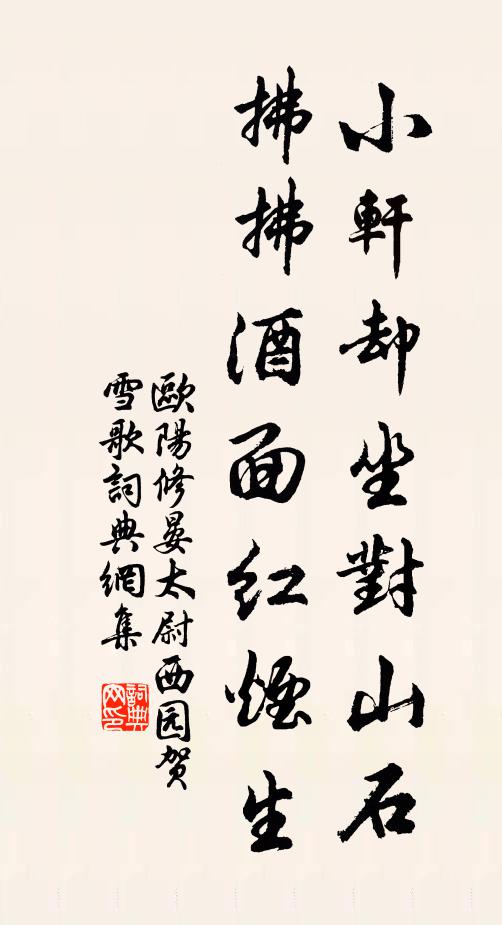 小軒却坐對山石
拂拂酒面紅煙生
歐陽修晏太尉西园贺
雪歌詞典網集
詞典
网印